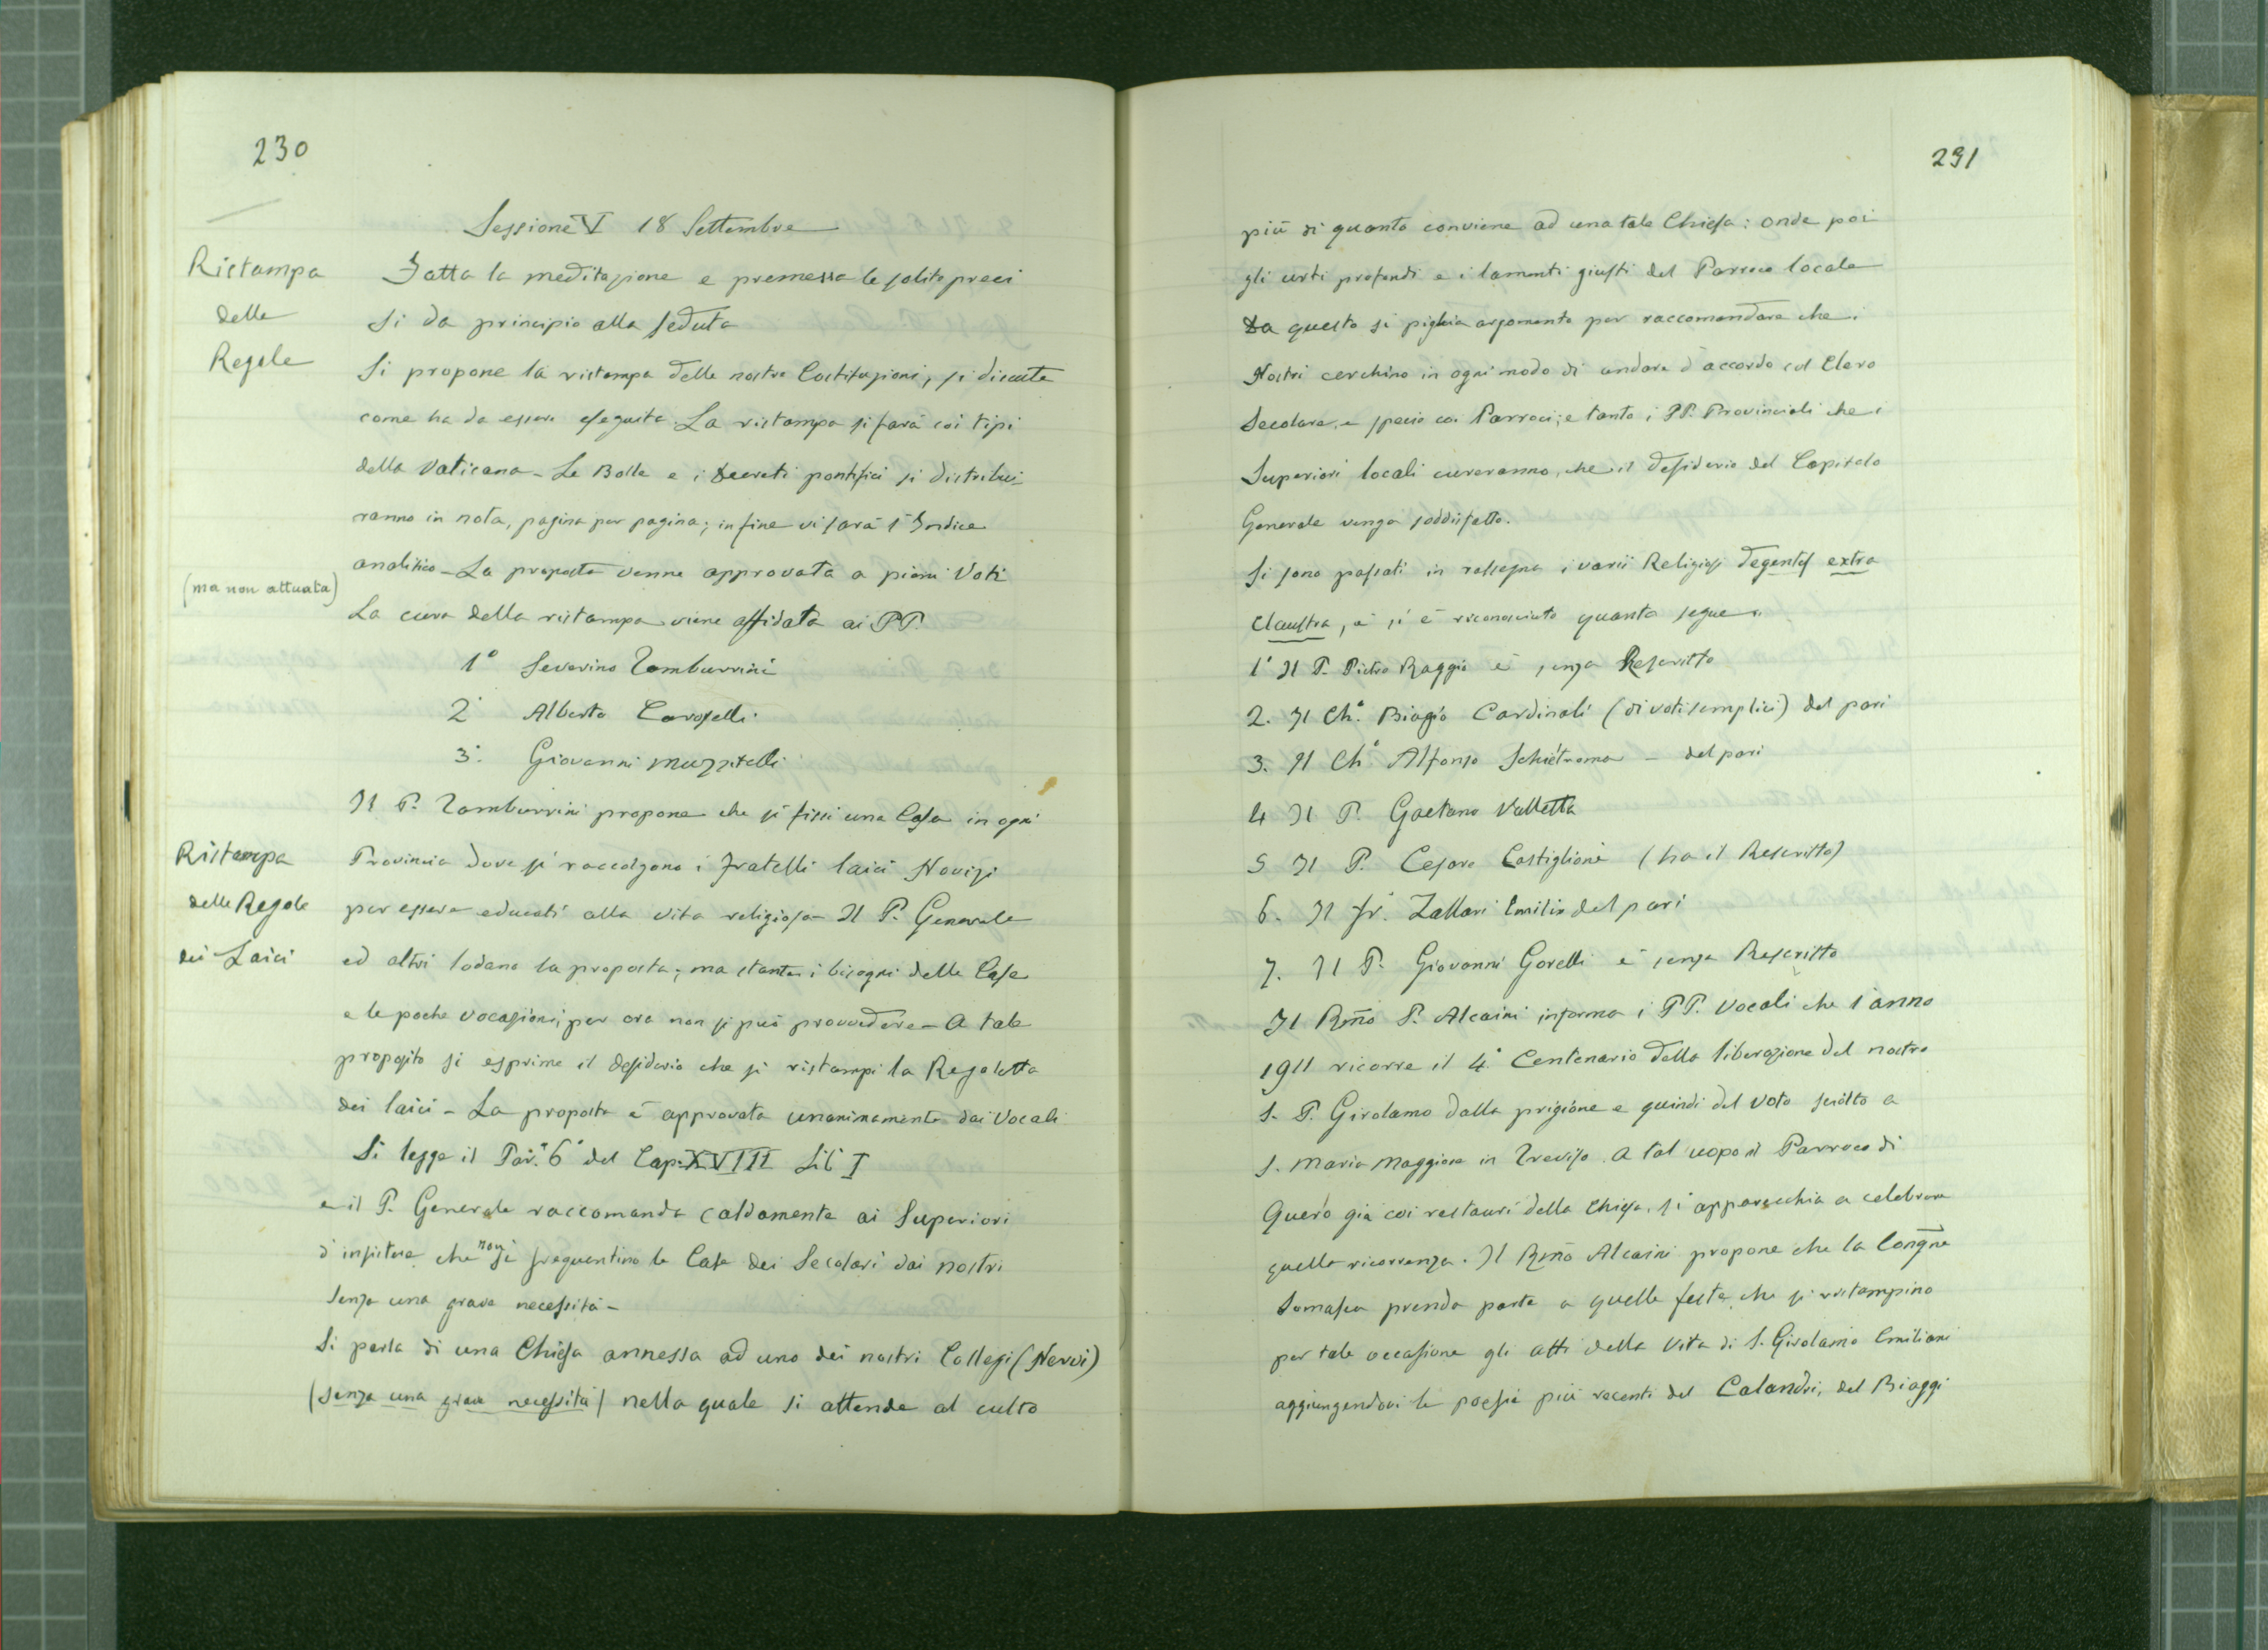 230
Sessione V 18 Settembre
Ristampa
delle
Regole
Fatta la meditazione e premessa le solite preci
si da principio alla seduta
Si propone la ristampa delle nostre Costituzioni, si discute
come ha da essere eseguita. La ristampa si farà coi tipi
della Vaticana - Le Bolle e i Decreti pontifici si distribui-
ranno in nota, pagina per pagina; in fine vi sarà l'Indice
analitico - La proposta venne approvata a pieni Voti
(ma non attuata)
La cura della ristampa viene affidata ai PP.
1° Severino Tamburrini
2° Alberto Caroselli
3° Giovanni Muzzitelli
Il P. Tamburrini propone che si fissi una Casa in ogni
Ristampa
delle Regole
dei Laici
Provincia dove si raccolgano i fratelli laici Novizi
per essere educati alla vita religiosa - Il P. Generale
ed altri lodano la proposta; ma stante i bisogni delle Case
e le poche vocazioni, per ora non si può provvedere - A tale
proposito si esprime il desiderio che si ristampi la Regoletta
dei laici - La proposta è approvata unanimamente dai Vocali
Si legge il Par.° 6° del Cap. XVIII Lib I
e il P. Generale raccomanda caldamente ai Superiori
d'insistere che non si frequentino le Case dei Secolari dai nostri
senza una grave necessità -
Si parla di una Chiesa annessa ad uno dei nostri Collegi (Nervi)
(senza una grave necessità) nella quale si attende al culto
231
più di quanto conviene ad una tale Chiesa: onde poi
gli urti profondi e i lamenti giusti del Parroco locale
Da questo si piglia argomento per raccomandare che i
Nostri cerchino in ogni modo di andare d'accordo col Clero
Secolare, e specie coi Parroci; e tanto i PP. Provinciali che i
Superiori locali cureranno, che il desiderio del Capitolo
Generale venga soddisfatto.
Si sono passati in rassegna i varii Religiosi degentes extra
claustra, e si è riconosciuto quanto segue:
1° Il P. Pietro Raggio è senza Rescritto
2. Il Ch.° Biagio Cardinali (di voti semplici) del pari
3. Il Ch° Alfonso Schietroma - del pari
4 Il P. Gaetano Valletta
5 Il P. Cesare Castiglioni (ha il Rescritto)
6. Il Fr. Zallari Emilio del pari
7. Il P. Giovanni Gorelli è senza Rescritto
Il Rmo P. Alcaini informa i PP. Vocali che l'anno
1911 ricorre il 4° Centenario della liberazione del nostro
S. P. Girolamo dalla prigione e quindi del voto sciolto a
S. Maria Maggiore in Treviso. A tal uopo il Parroco di
Quero già coi restauri della Chiesa, si apparecchia a celebrare
quella ricorrenza. Il Rmo Alcaini propone che la Congne
Somasca prenda parte a quelle feste, che si ristampino
per tale occasione gli atti della Vita di S. Girolamo Emiliani
aggiungendovi le poesie più recenti del Calandri, del Biaggi